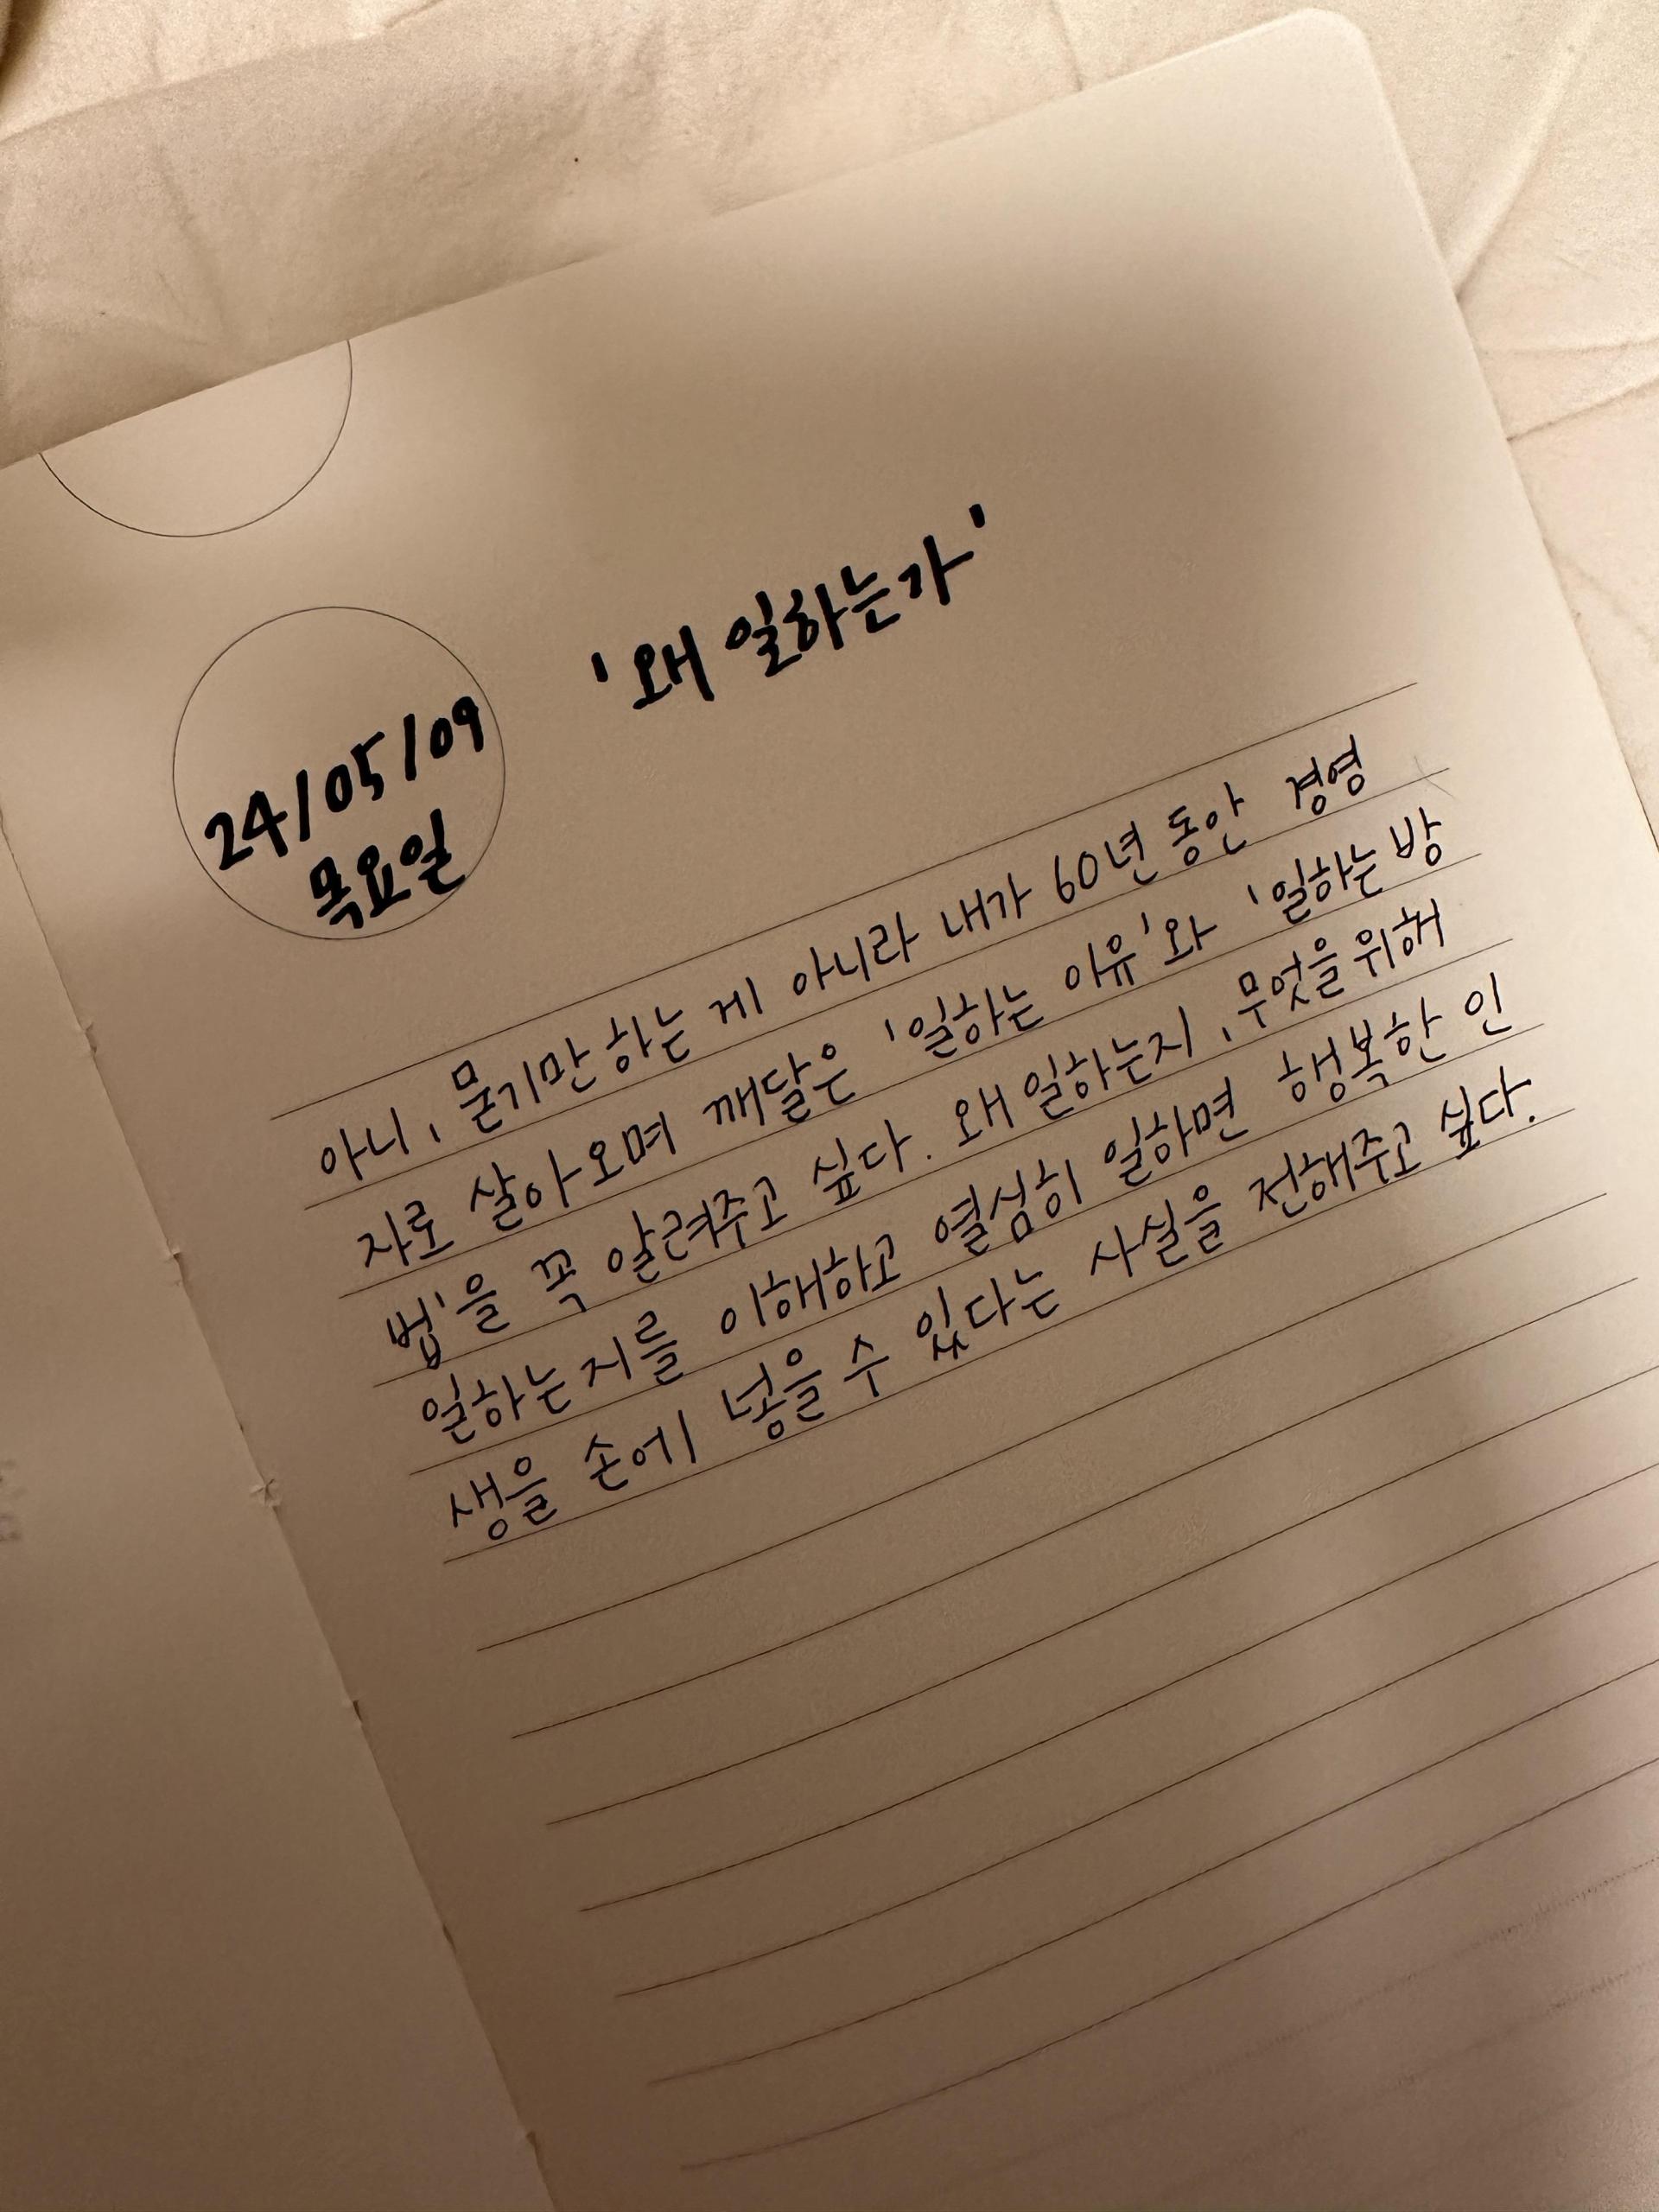 '왜 일하는가'
24/05/09
목요일
아니, 묻기만 하는 게 아니라 내가 60년 동안 경영
자로 살아오며 깨달은 '일하는 이유'와 '일하는 방
법'을 꼭 알려주고 싶다. 왜 일하는지, 무엇을 위해
일하는지를 이해하고 열심히 일하면 행복한 인
생을 손에 넣을 수 있다는 사실을 전해주고 싶다.